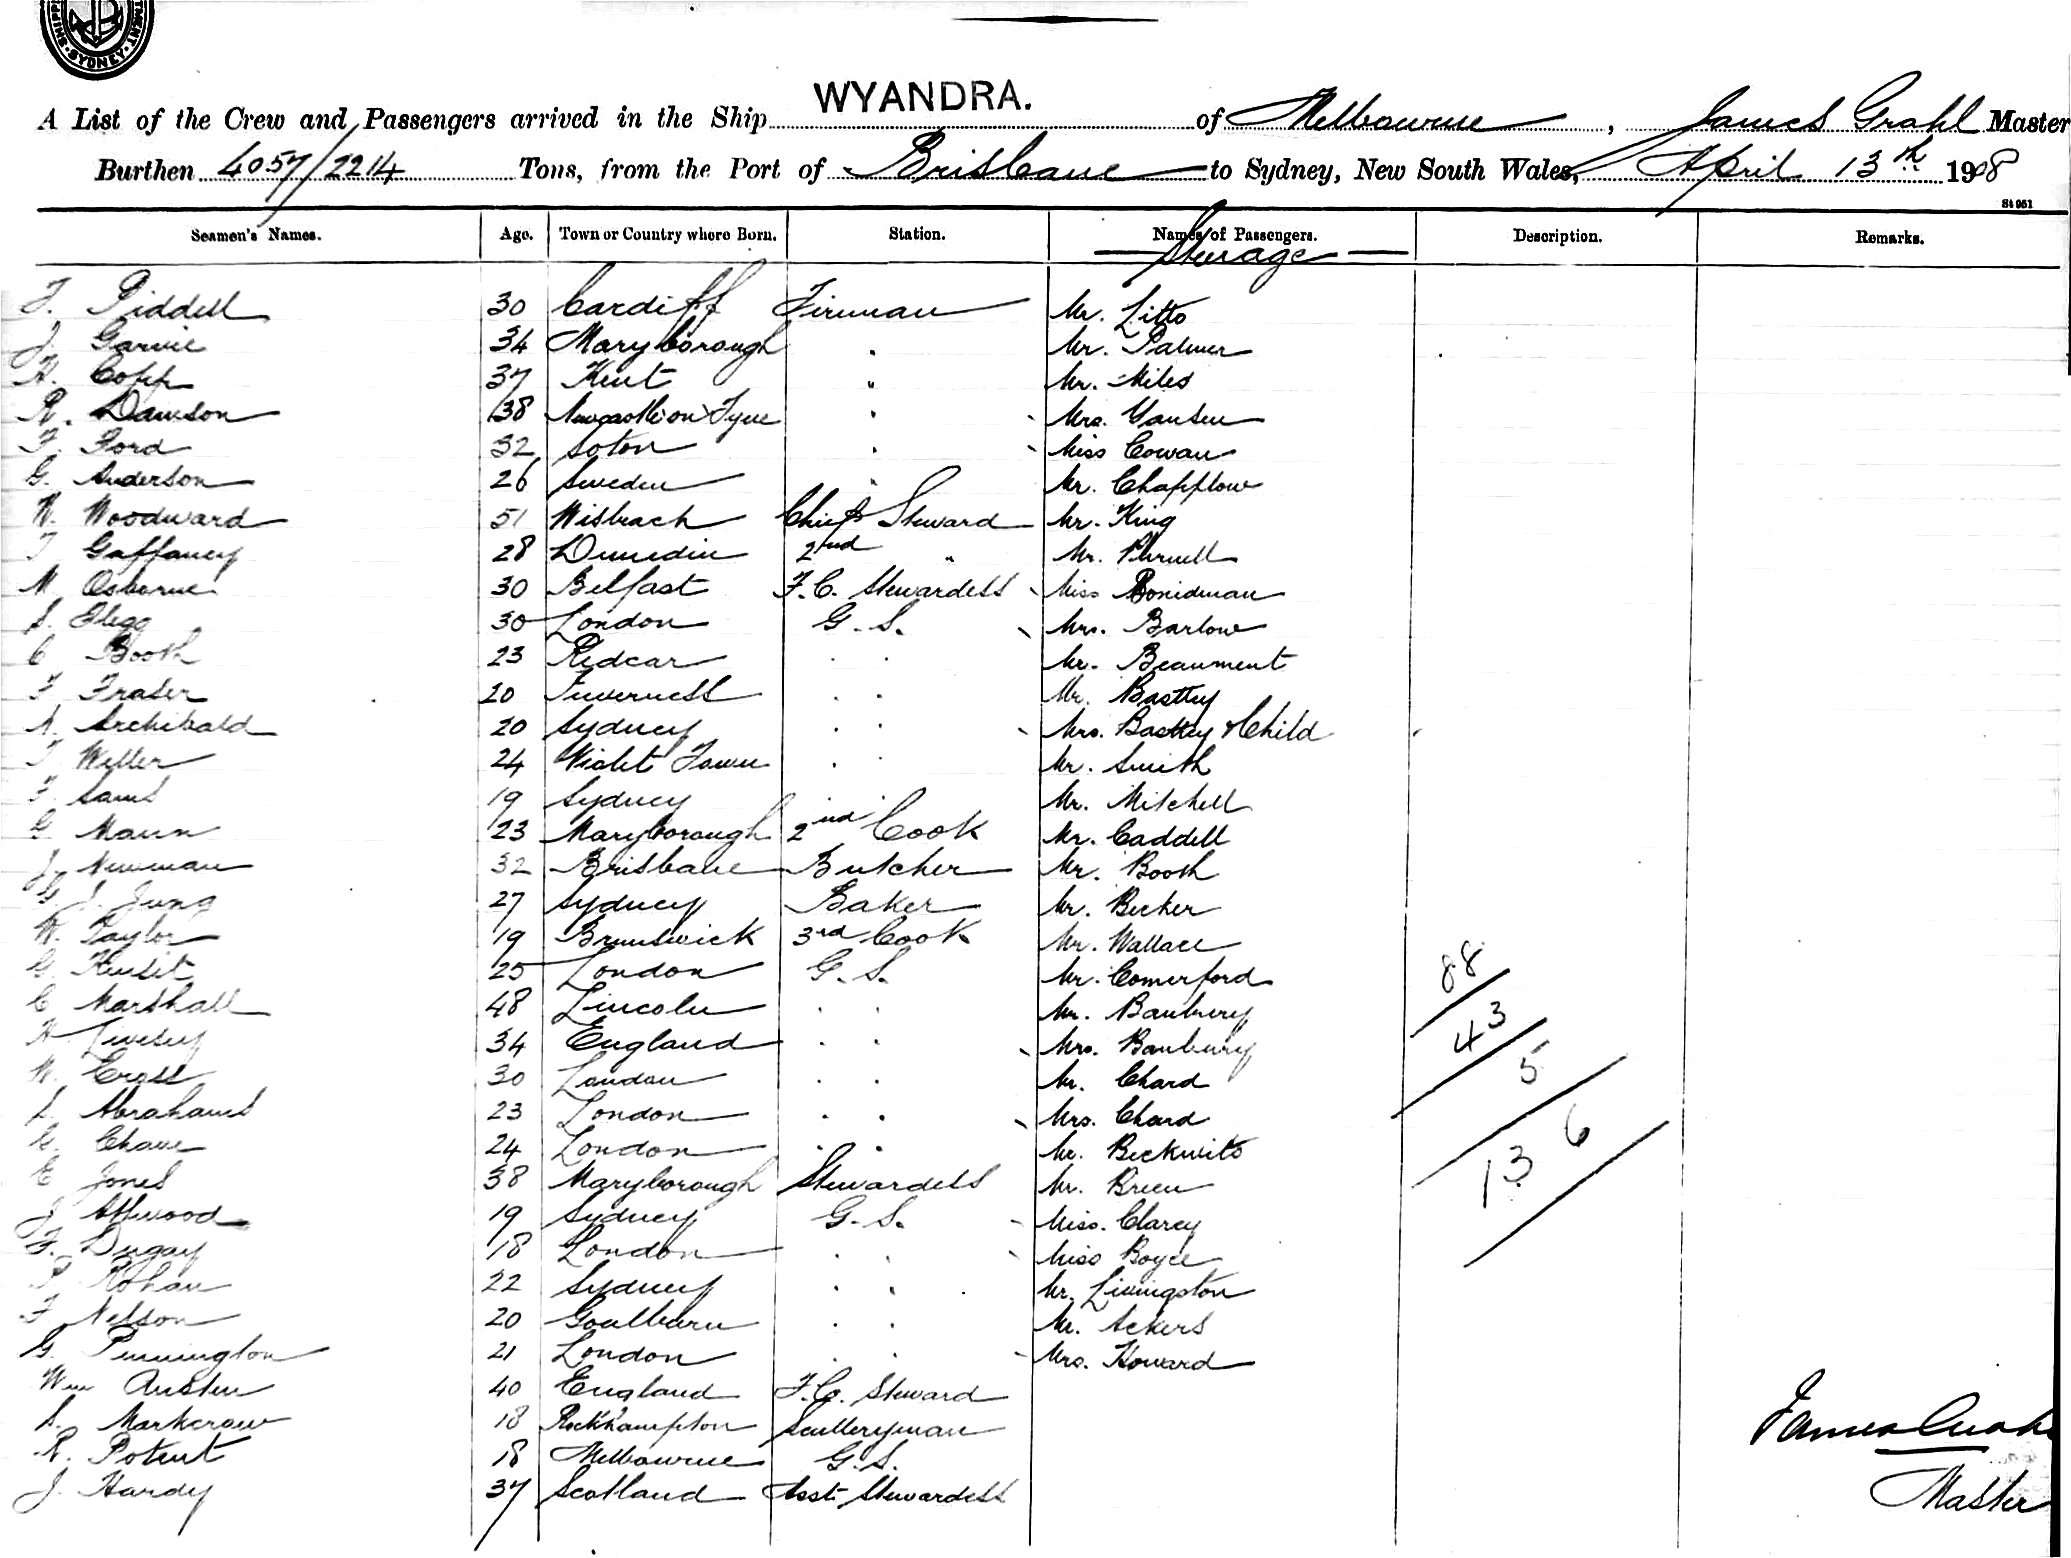 SHIPPI TMENT. SYDNEY.
A List of the Crew and Passengers arrived in the Ship WYANDRA. of Melbourne, James Grahl Master
Burthen 4057/2214 Tons, from the Port of Brisbane to Sydney, New South Wales, April 13th 1908
St 951
Seamen's Names. Age. Town or Country where Born. Station. Names of Passengers. Description. Remarks.
Steerage
F. Piddell 30 Cardiff Fireman Mr. Litto
J. Garvie 34 Maryborough " Mr. Palmer
H. Copp 37 Kent " Mr. Miles
R. Dawson 38 Newcastle on Tyne " Mrs. Yansen
F. Ford 32 Soton " Miss Cowan
G. Anderson 26 Sweden " Mr. Chapplow
W. Woodward 51 Wisbeach Chief Steward Mr. King
T Gaffaney 28 Dunedin 2nd " Mr. Purnell
M Osborne 30 Belfast F.C. Stewardess Miss Bonidman
S. Flegg 30 London G.S. Mrs. Barlow
C Booth 23 Redcar " " Mr. Beaument
F Fraser 20 Inverness " " Mr. Basttey
A. Archibald 20 Sydney " " Mrs. Basttey & Child
T Weller 24 Violet Town " " Mr. Smith
F. Sams 19 Sydney " " Mr. Mitchell
G. Mann 23 Maryborough 2nd Cook Mr. Caddell
J. Newman 32 Brisbane Butcher Mr. Booth
G. J. Jung 27 Sydney Baker Mr. Becker
W. Taylor 19 Brunswick 3rd Cook Mr. Wallace
G. Kensit 25 London G.S. Mr. Comerford
C Marshall 48 Lincoln " " Mr. Banbury
H Livesey 34 England " " Mrs. Banbury
W. Cross 30 London " " Mr. Chard
S. Abrahams 23 London " " Mrs. Chard
G. Chave 24 London " " Mr. Beckwith
E Jones 38 Maryborough Stewardess Mr. Breen
J Attwood 19 Sydney G.S. Miss. Clarey
F. Dugay 18 London " " Miss Boyce
P Rohan 22 Sydney " " Mr. Livingston
F Nelson 20 Goulburn " " Mr. Ackers
G. Pennington 21 London " " Mrs. Howard
Wm Austen 40 England F.C. Steward
S. Markcrow 18 Rockhampton Sculleryman
R. Potent 18 Melbourne G.S.
J. Hardy 37 Scotland Asst. Stewardess
88
43
5
136
James
Master